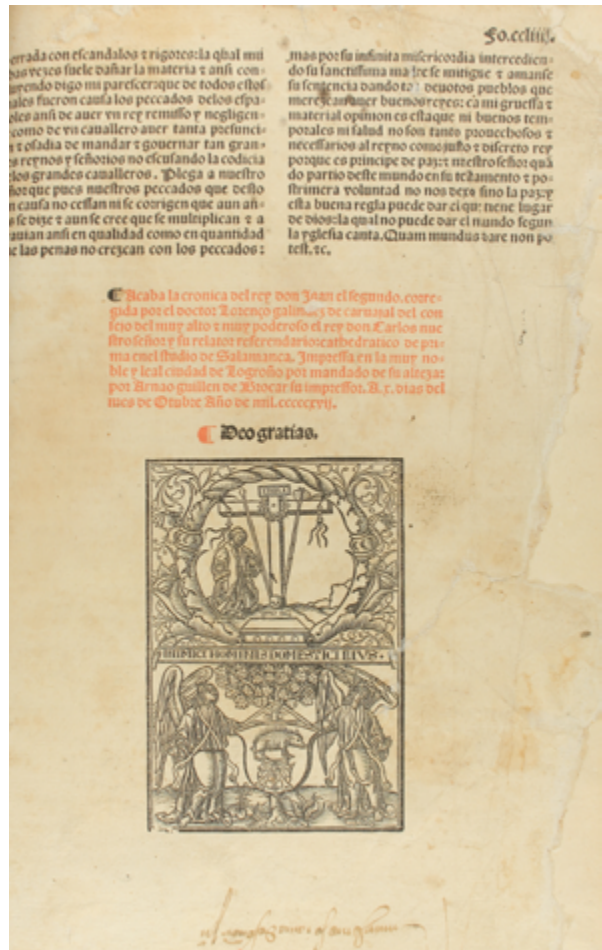 Fo.ccliiij.
errada con escandalos ⁊ rigores: la qual mu
vezes suele dañar la materia ⁊ ansi con
yendo digo mi parescer: que de todos estos
ales fueron causa los peccados delos espa
oles ansi de auer vn rey remisso y negligen
como de vn cauallero auer tanta presunci
⁊ osadia de mandar ⁊ gouernar tan gran
es reynos y señorios no escusando la codicia
los grandes caualleros. Plega a nuestro
ñor que pues nuestros peccados que desto
n causa no cessan ni se corrigen que aun añ
se dize ⁊ aun se cree que se multiplican ⁊ a
auian ansi en qualidad como en quantidad
e las penas no crezcan con los peccados:
mas por su infinita misericordia intercedien
do su sanctissima madre se mitigue ⁊ amanse
su sentencia dando deuotos pueblos que
merezcan auer buenos reyes: ca mi gruessa ⁊
material opinion es esta que ni buenos tem
porales ni salud no son tanto prouechosos ⁊
necessarios al reyno como justo ⁊ discreto rey
porque es principe de paz: ⁊ nuestro señor quã
do partio deste mundo en su testamento ⁊ po
strimera voluntad no nos dexo sino la paz: y
esta buena regla puede dar el que tiene lugar
de dios: la qual no puede dar el mundo segun
la yglesia canta. Quam mundus dare non po
test. ⁊c.
Acaba la cronica del rey don Juan el segundo. corre
gida por el doctor Lorenço galindez de caruajal del con
sejo del muy alto ⁊ muy poderoso el rey don Carlos nue
stro señor y su relator referendario: cathedratico de pri
ma enel studio de Salamanca. Impressa en la muy no
ble y leal ciudad de Logroño por mandado de su alteza:
por Arnao guillen de Brocar su impressor. A .x. dias del
mes de Otubre Año de mil. cccccxvij.
Deo gratias.
INIMICI HOMINIS DOMESTICI EIVS.